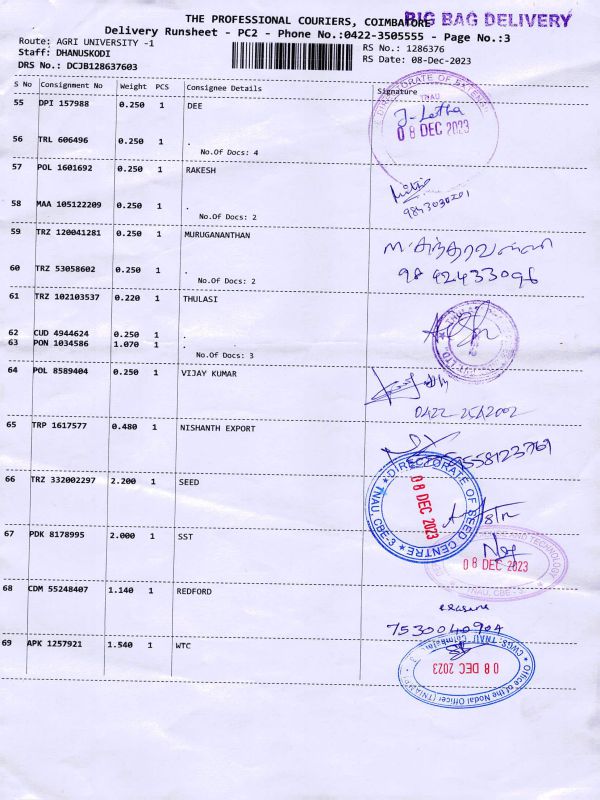 THE PROFESSIONAL COURIERS, COIMBATORE BIG BAG DELIVERY
Delivery Runsheet - PC2 - Phone No.:0422-3505555 - Page No.:3
Route: AGRI UNIVERSITY -1 RS No.: 1286376
Staff: DHANUSKODI RS Date: 08-Dec-2023
DRS No.: DCJB128637603
S No Consignment No Weight PCS Consignee Details Signature
55 DPI 157988 0.250 1 DEE
DIRECTORATE OF
TNAU
J-Letha
08 DEC 2023
56 TRL 606496 0.250 1 .
No.Of Docs: 4
57 POL 1601692 0.250 1 RAKESH
58 MAA 105122209 0.250 1 .
9843030201
No.Of Docs: 2
59 TRZ 120041281 0.250 1 MURUGANANTHAN
60 TRZ 53058602 0.250 1 .
9842433096
No.Of Docs: 2
61 TRZ 102103537 0.220 1 THULASI
62 CUD 4944624 0.250 1 .
63 PON 1034586 1.070 1 .
No.Of Docs: 3
64 POL 8589404 0.250 1 VIJAY KUMAR
65 TRP 1617577 0.480 1 NISHANTH EXPORT
66 TRZ 332002297 2.200 1 SEED
DIRECTORATE OF SEED CENTRE
TNAU, CBE-3
08 DEC 2023
67 PDK 8178995 2.000 1 SST
AND TECHNOLOGY
08 DEC 2023
TNAU, CBE - 3
68 CDM 55248407 1.140 1 REDFORD
7530040904
69 APK 1257921 1.540 1 WTC
CWGS: TNAU, Coimbatore - 3
08 DEC 2023
Office of the Nodal Officer